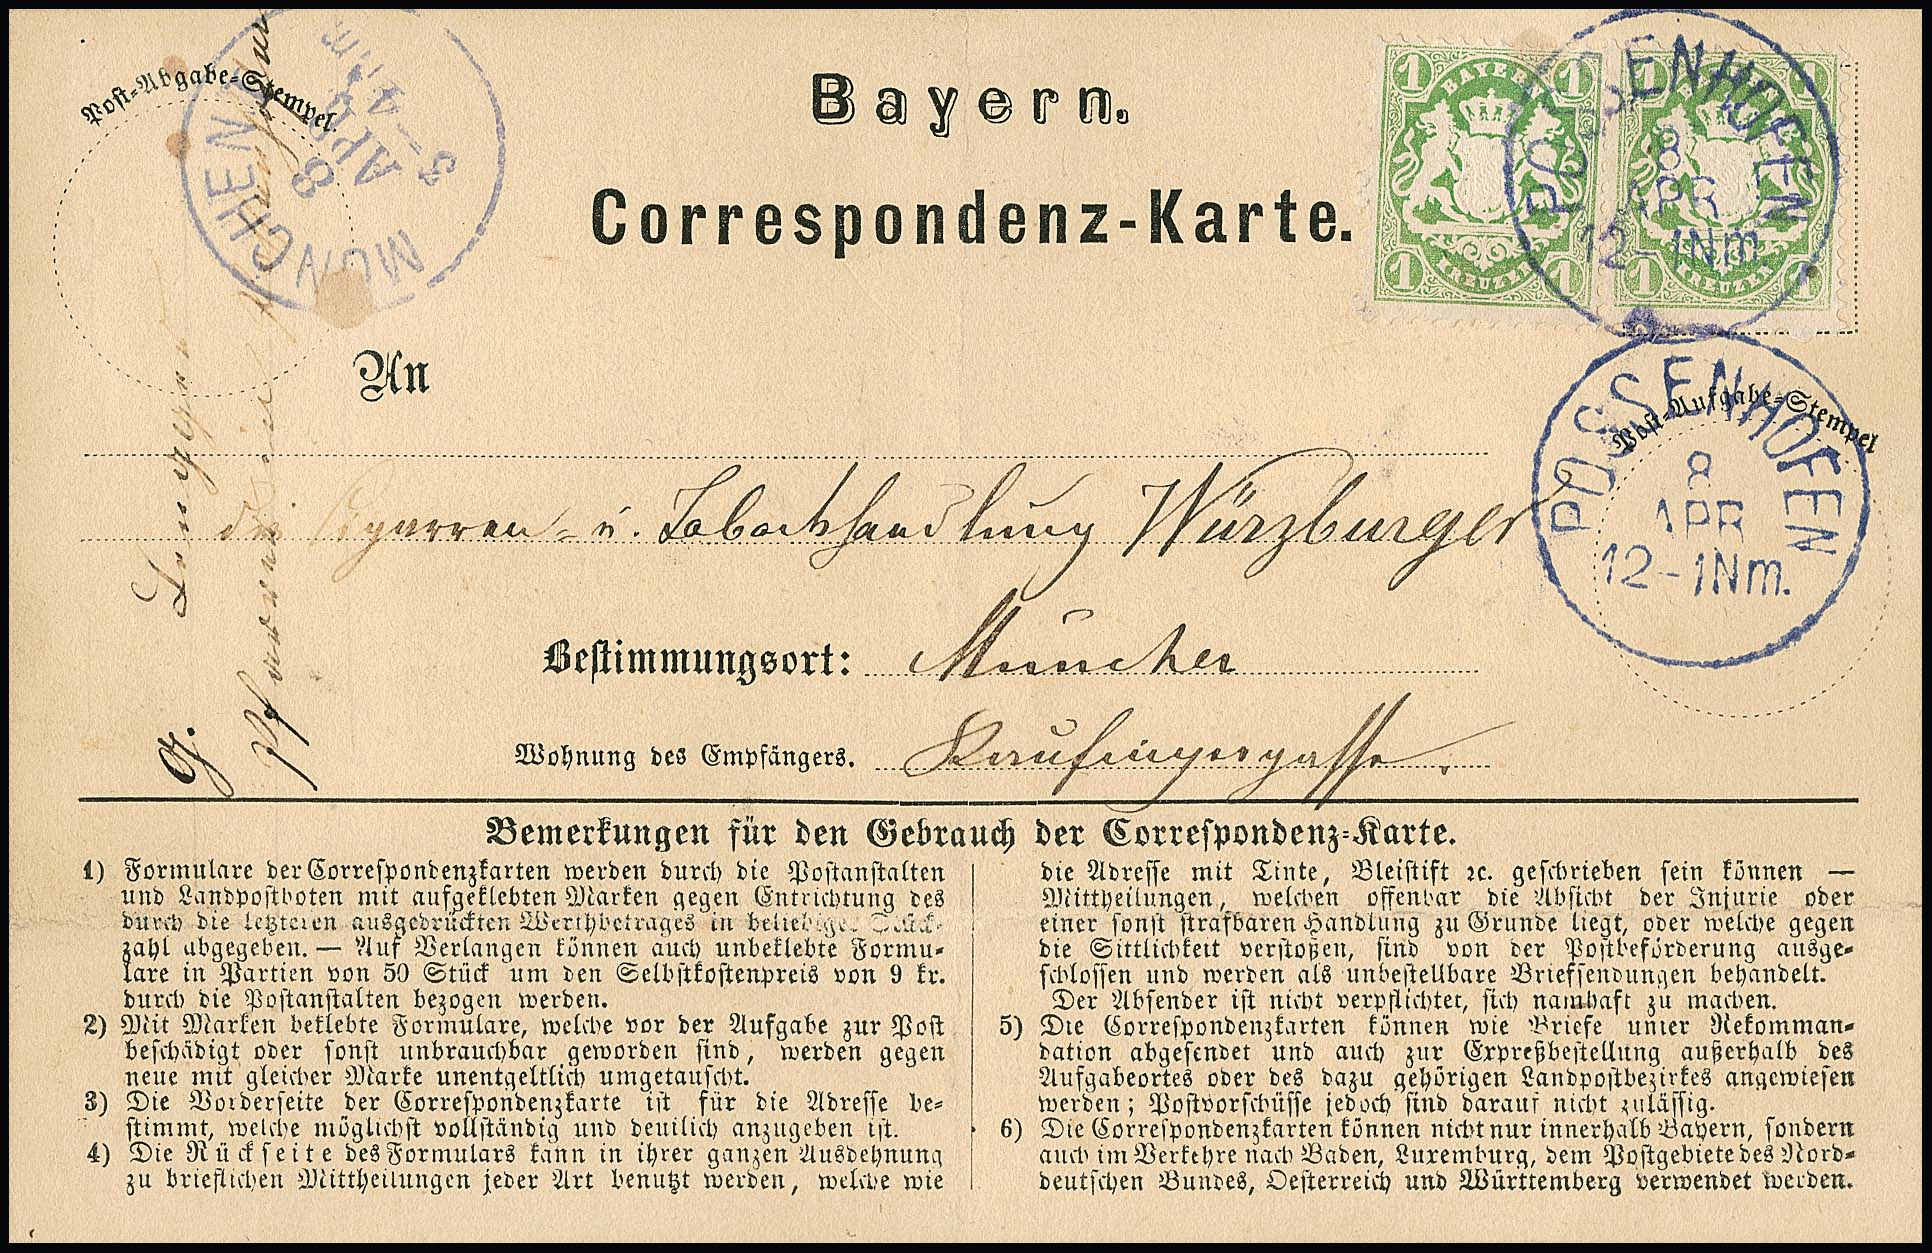 Post-Abgabe-Stempel.
MÜNCHEN I
8
APR
Bayern.
Correspondenz-Karte.
1 BAYERN 1
1 KREUZER 1
1 BAYERN 1
1 KREUZER 1
POSSENHOFEN
8
APR
12-1Nm.
Post-Aufgabe-Stempel
POSSENHOFEN
8
APR
12-1Nm.
An
die Cigarren- u. Tabackhandlung Würzburger
Bestimmungsort: München
Wohnung des Empfängers. Kaufingergasse.
Bemerkungen für den Gebrauch der Correspondenz-Karte.
1) Formulare der Correspondenzkarten werden durch die Postanstalten
und Landpostboten mit aufgeklebten Marken gegen Entrichtung des
durch die letzteren ausgedrückten Werthbetrages in beliebiger Stück-
zahl abgegeben. — Auf Verlangen können auch unbeklebte Formu-
lare in Partien von 50 Stück um den Selbstkostenpreis von 9 kr.
durch die Postanstalten bezogen werden.
2) Mit Marken beklebte Formulare, welche vor der Aufgabe zur Post
beschädigt oder sonst unbrauchbar geworden sind, werden gegen
neue mit gleicher Marke unentgeltlich umgetauscht.
3) Die Vorderseite der Correspondenzkarte ist für die Adresse be-
stimmt, welche möglichst vollständig und deutlich anzugeben ist.
4) Die Rückseite des Formulars kann in ihrer ganzen Ausdehnung
zu brieflichen Mittheilungen jeder Art benutzt werden, welche wie
die Adresse mit Tinte, Bleistift ꝛc. geschrieben sein können —
Mittheilungen, welchen offenbar die Absicht der Injurie oder
einer sonst strafbaren Handlung zu Grunde liegt, oder welche gegen
die Sittlichkeit verstoßen, sind von der Postbeförderung ausge-
schlossen und werden als unbestellbare Briefsendungen behandelt.
Der Absender ist nicht verpflichtet, sich namhaft zu machen.
5) Die Correspondenzkarten können wie Briefe unter Rekomman-
dation abgesendet und auch zur Expreßbestellung außerhalb des
Aufgabeortes oder des dazu gehörigen Landpostbezirkes angewiesen
werden; Postvorschüsse jedoch sind darauf nicht zulässig.
6) Die Correspondenzkarten können nicht nur innerhalb Bayern, sondern
auch im Verkehre nach Baden, Luxemburg, dem Postgebiete des Nord-
deutschen Bundes, Oesterreich und Württemberg verwendet werden.